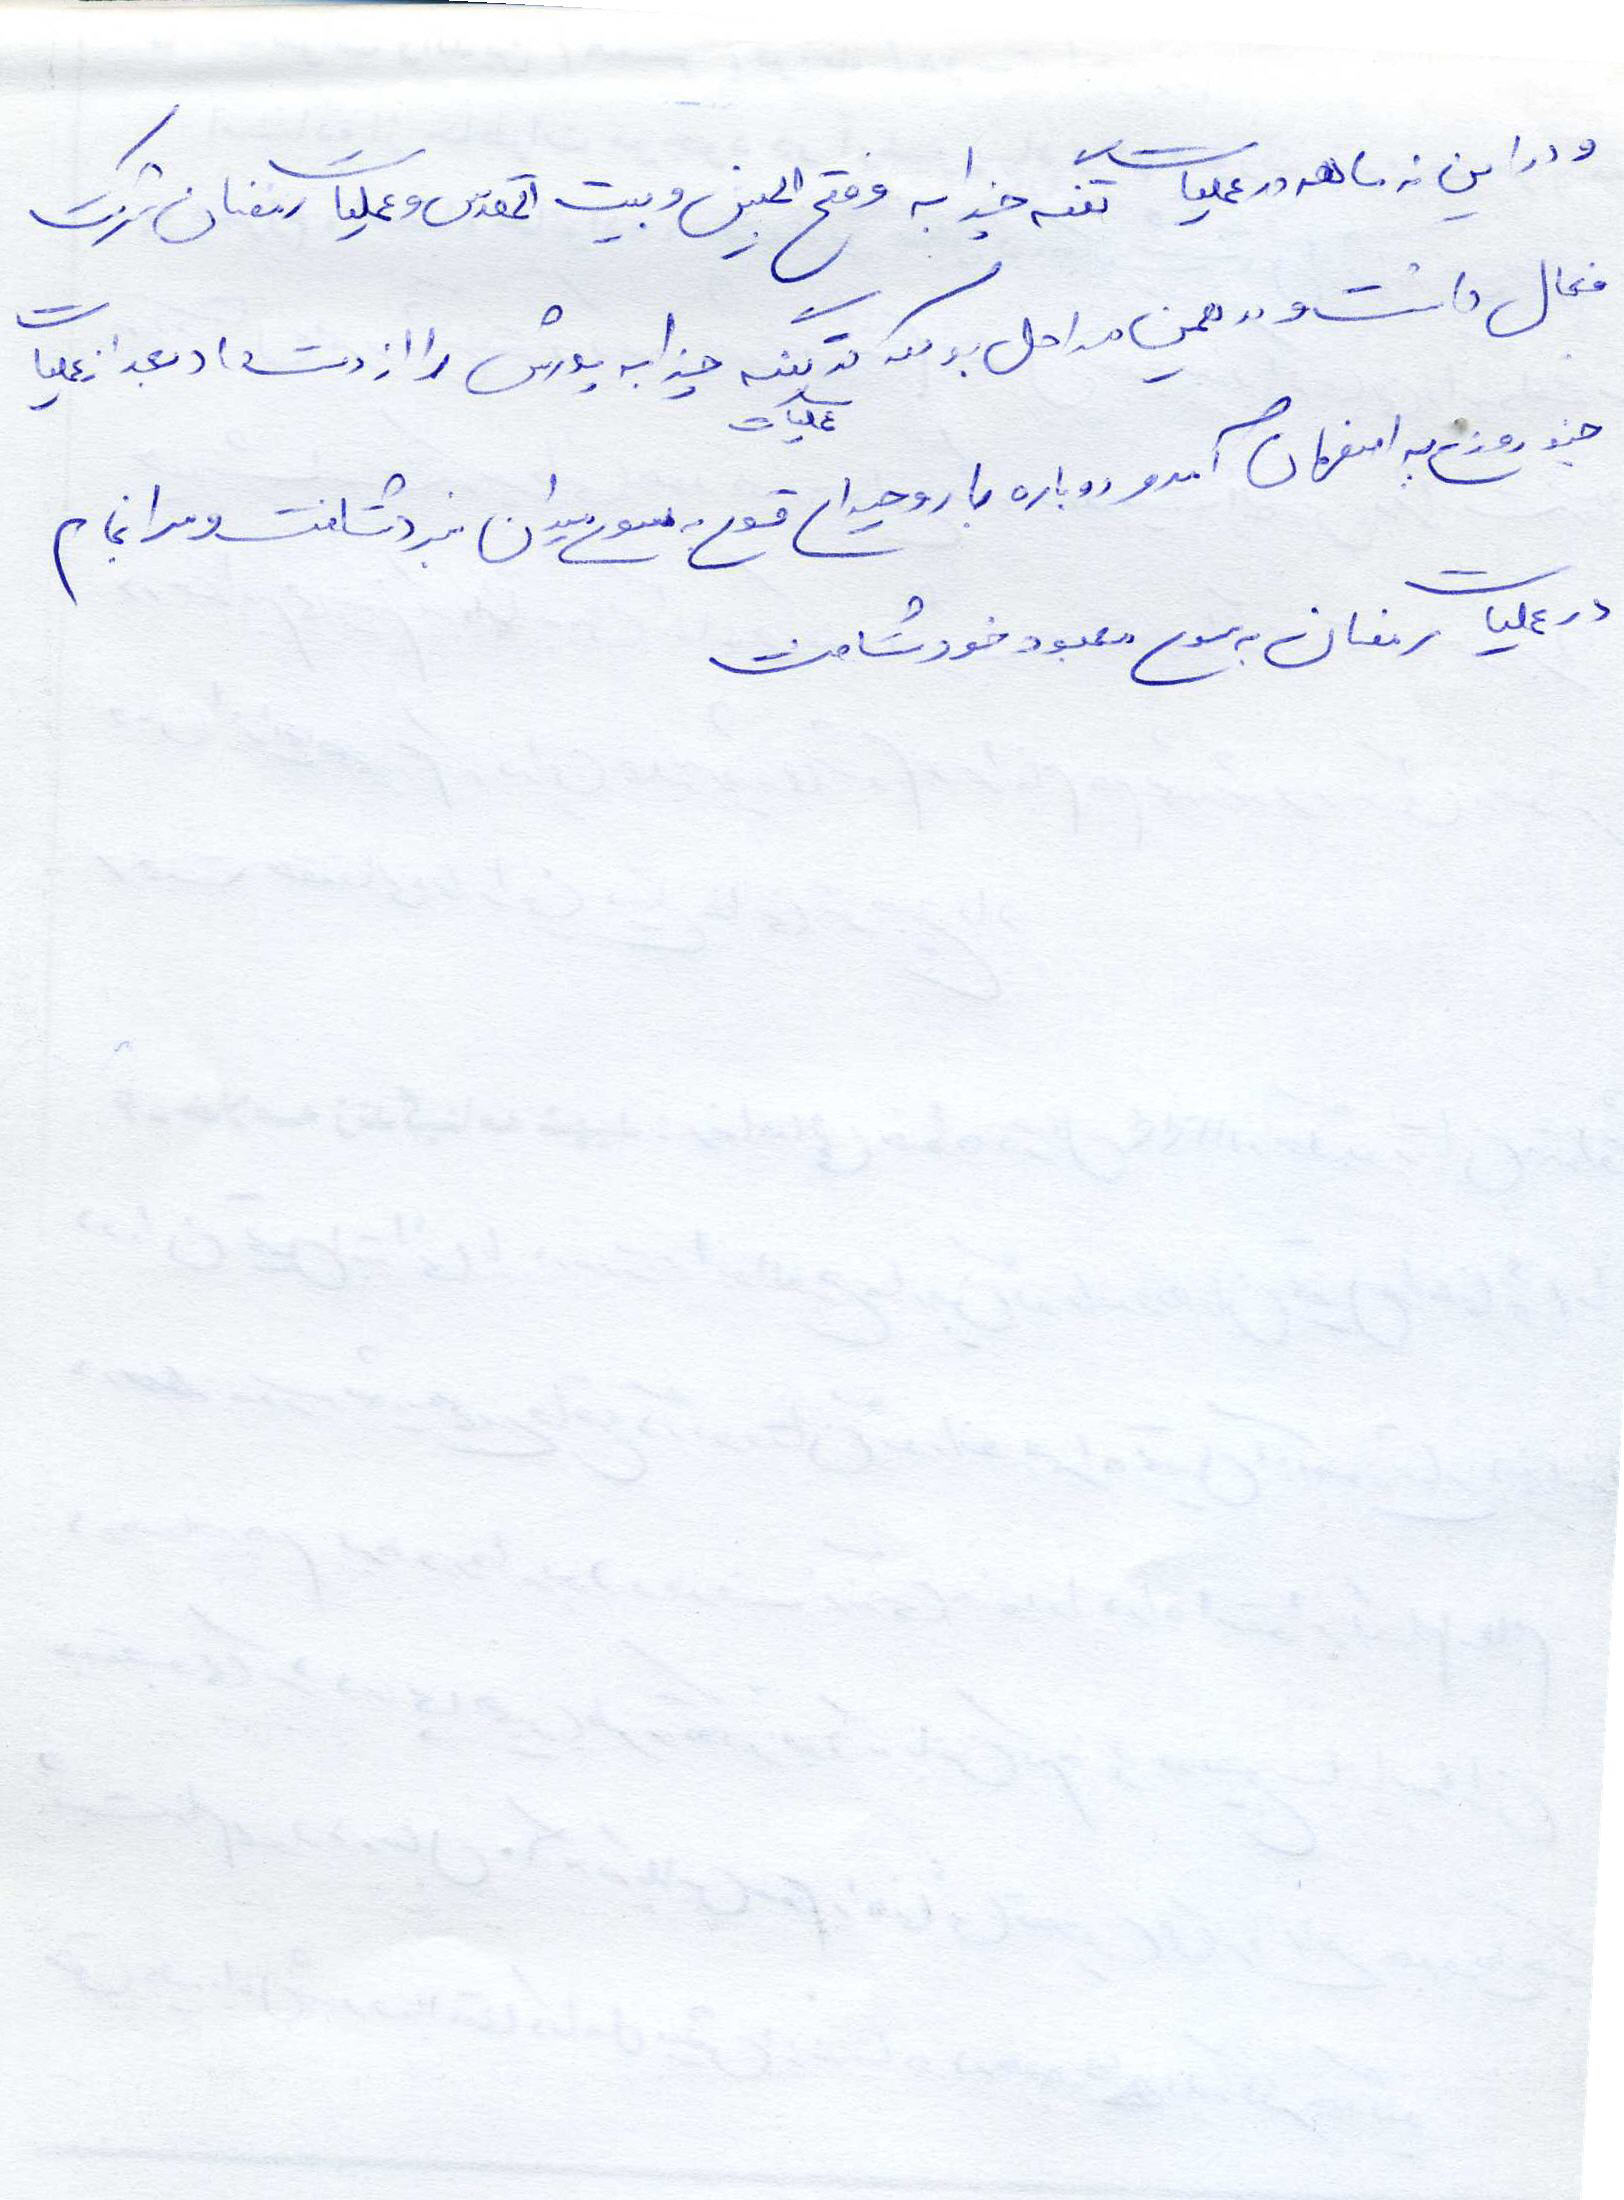 و در این نه ماهه در عملیات تنگه چزابه و فتح المبین و بیت المقدس و عملیات رمضان شرکت
فعال داشت و در همین مراحل بود که در تنگه چزابه پدرش را از دست داد بعد از عملیات
عملیات
چند روزی به اصفهان آمد و دوباره با روحیه‌ای قوی به سوی میدان نبرد شتافت و سرانجام
در عملیات رمضان به سوی معبود خود شتافت